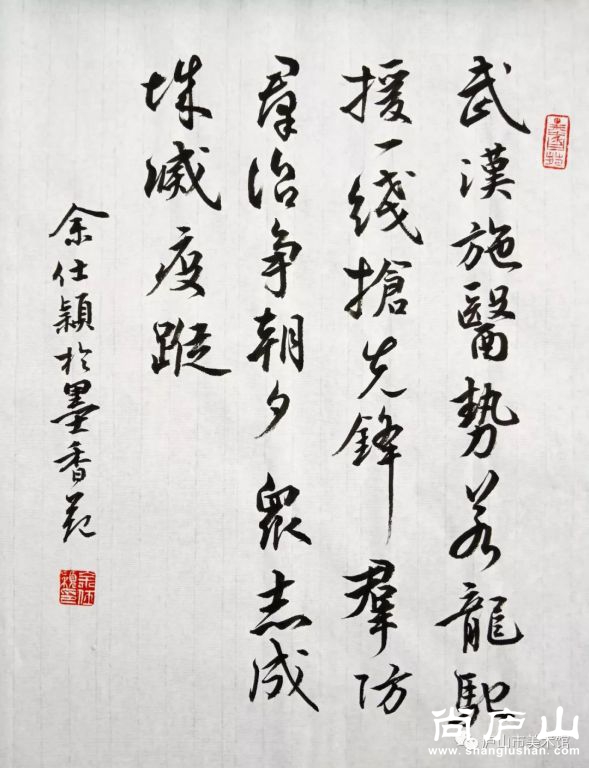 武漢施醫勢若龍馳
援一綫搶先鋒羣防
群治争朝夕眾志成
城滅疫蹤
余仕穎於墨香苑
尚庐山
庐山市美术馆
www.shanglushan.com